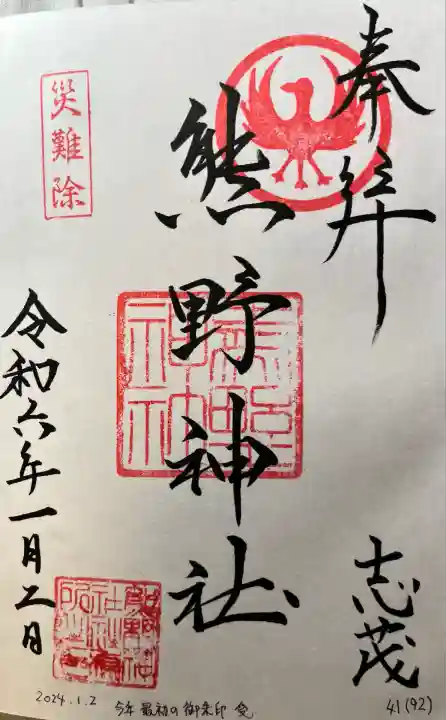 奉拝
志茂
熊野神社
熊野神社
災難除
令和六年一月二日
2024.1.2
今年最初の御朱印
41(92)